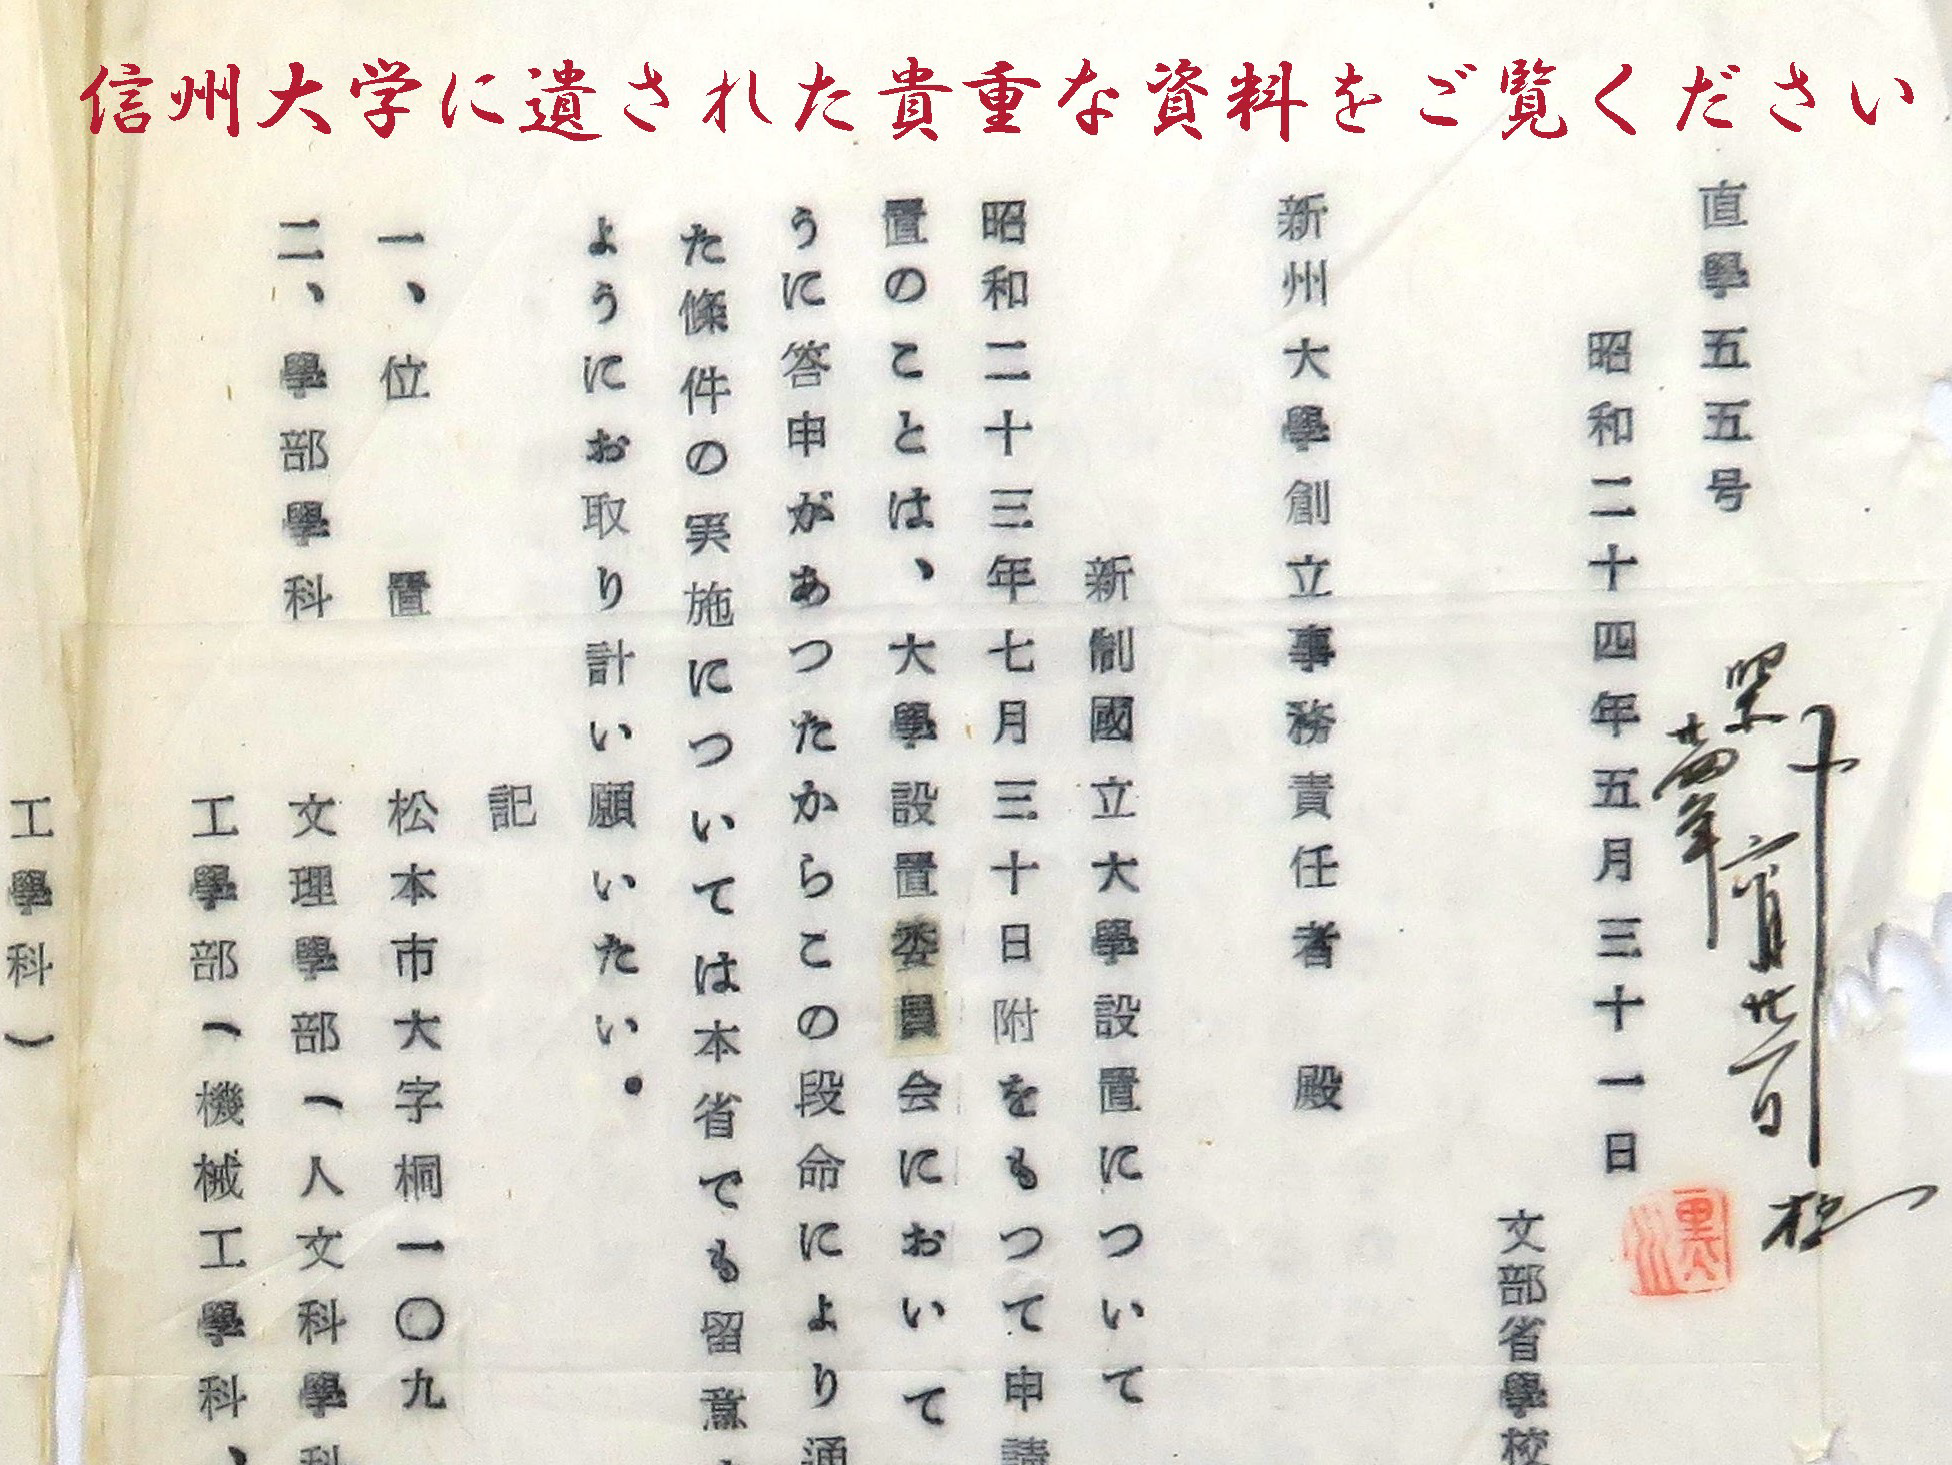 信州大学に遺された貴重な資料をご覧ください
直學五五号
昭和二十四年五月三十一日
文部省學校
新州大學創立事務責任者　殿
新制國立大學設置について
昭和二十三年七月三十日附をもつて申請
置のことは、大學設置委員会において
うに答申があつたからこの段命により通
た條件の実施については本省でも留意
ようにお取り計い願いたい。
記
一、位　置　松本市大字桐一〇九
二、學部學科　文理學部（人文科學科
工學部（機械工學科、
工學科）